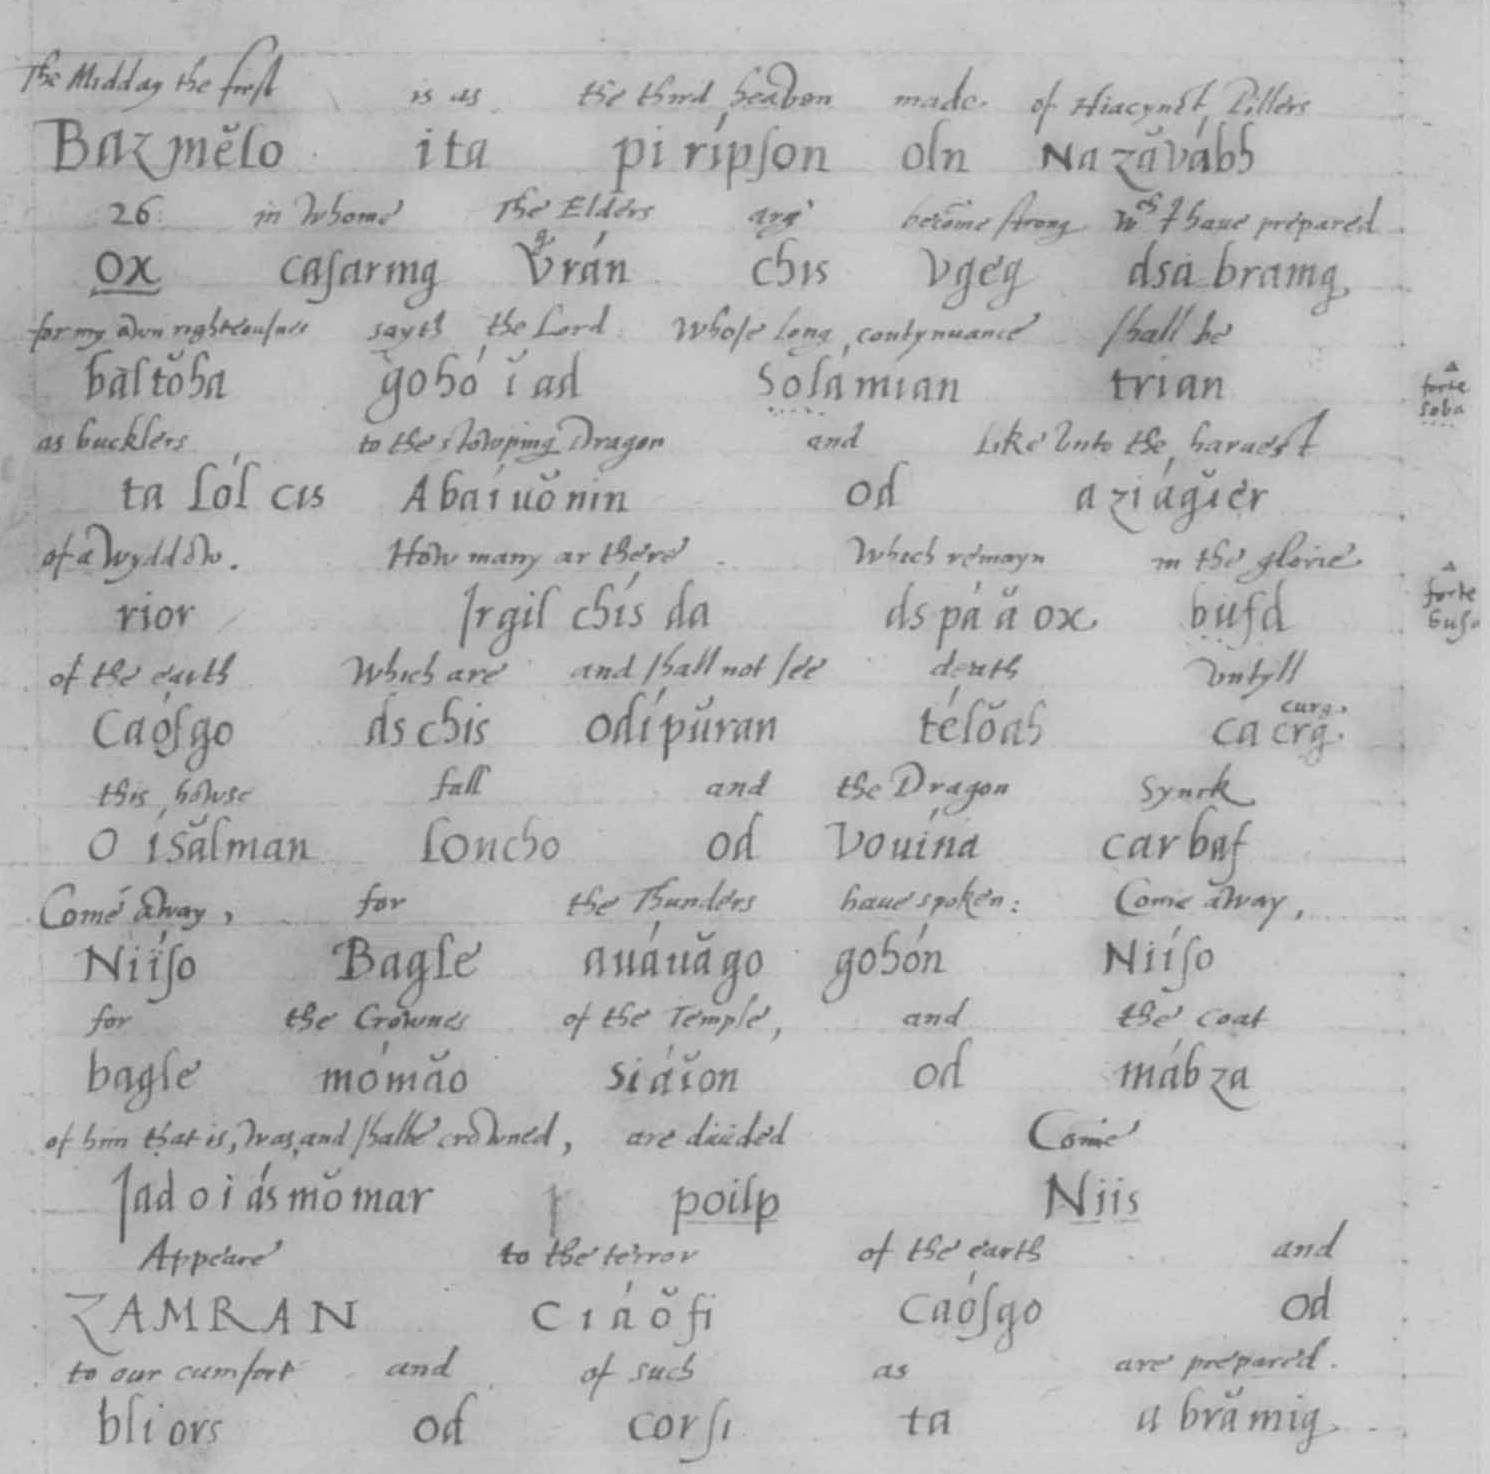 The Midday the first is as the third heaven made of Hiacynct Pillers
Bazmĕlo ita pi rípſon oln Nazăvábh
26 in whome The Elders are become strong wᶜʰ I haue prepared
OX caſarmg vrán chis vgeg dsa bramg
for my own righteousnes sayth the Lord Whose long contynuance shall be
baltŏha gohó ĭ ad Solámian trian
forte soba
as bucklers to the stowping Dragon and Like vnto the haruest
ta lól cis Abaíuŏnin od aziágĭer
of a wyddow. How many ar there Which remayn in the glorie
rior Irgil chís da ds pá ă ox buſd
forte
of the earth Which are and shall not see death vntyll
Caóſgo ds chis odípŭran télŏah cacrg
curg.
this howse fall and the Dragon Synck
O íSălman loncho od Vouína carbaf
Come away, for the Thunders haue spoken: Come away,
Niíſo Bagle auáuăgo gohón Niíſo
for the Crownes of the Temple, and the coat
bagle mómăo Siáĭon od mábza
of him that is, was, and shalbe crowned, are diuided Come
Jad o i ás mŏ mar poilp Niis
Appeare to the terror of the earth and
ZAMRAN Ciáŏfi Caóſgo od
to our cumfort and of such as are prepared.
bliors od corſi ta a brămig